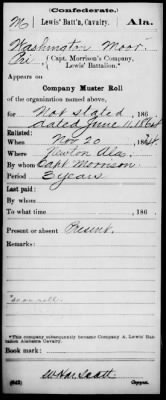 (Confederate.)
M | Lewis' Batt'n, Cavalry. | Ala.
Washington Moor
Pri, { Capt. Morrison's Company, Lewis' Battalion.*
Appears on
Company Muster Roll
of the organization named above,
for Not stated, 186 .
dated June 11, 1864
Enlisted:
When Nov 20, 186
Where Newton Ala.
By whom Capt Morrison
Period 3 years
Last paid:
By whom
To what time , 186 .
Present or absent Present.
Remarks:
*This company subsequently became Company A, Lewis' Battalion Alabama Cavalry.
Book mark:
(642)
Copyist.